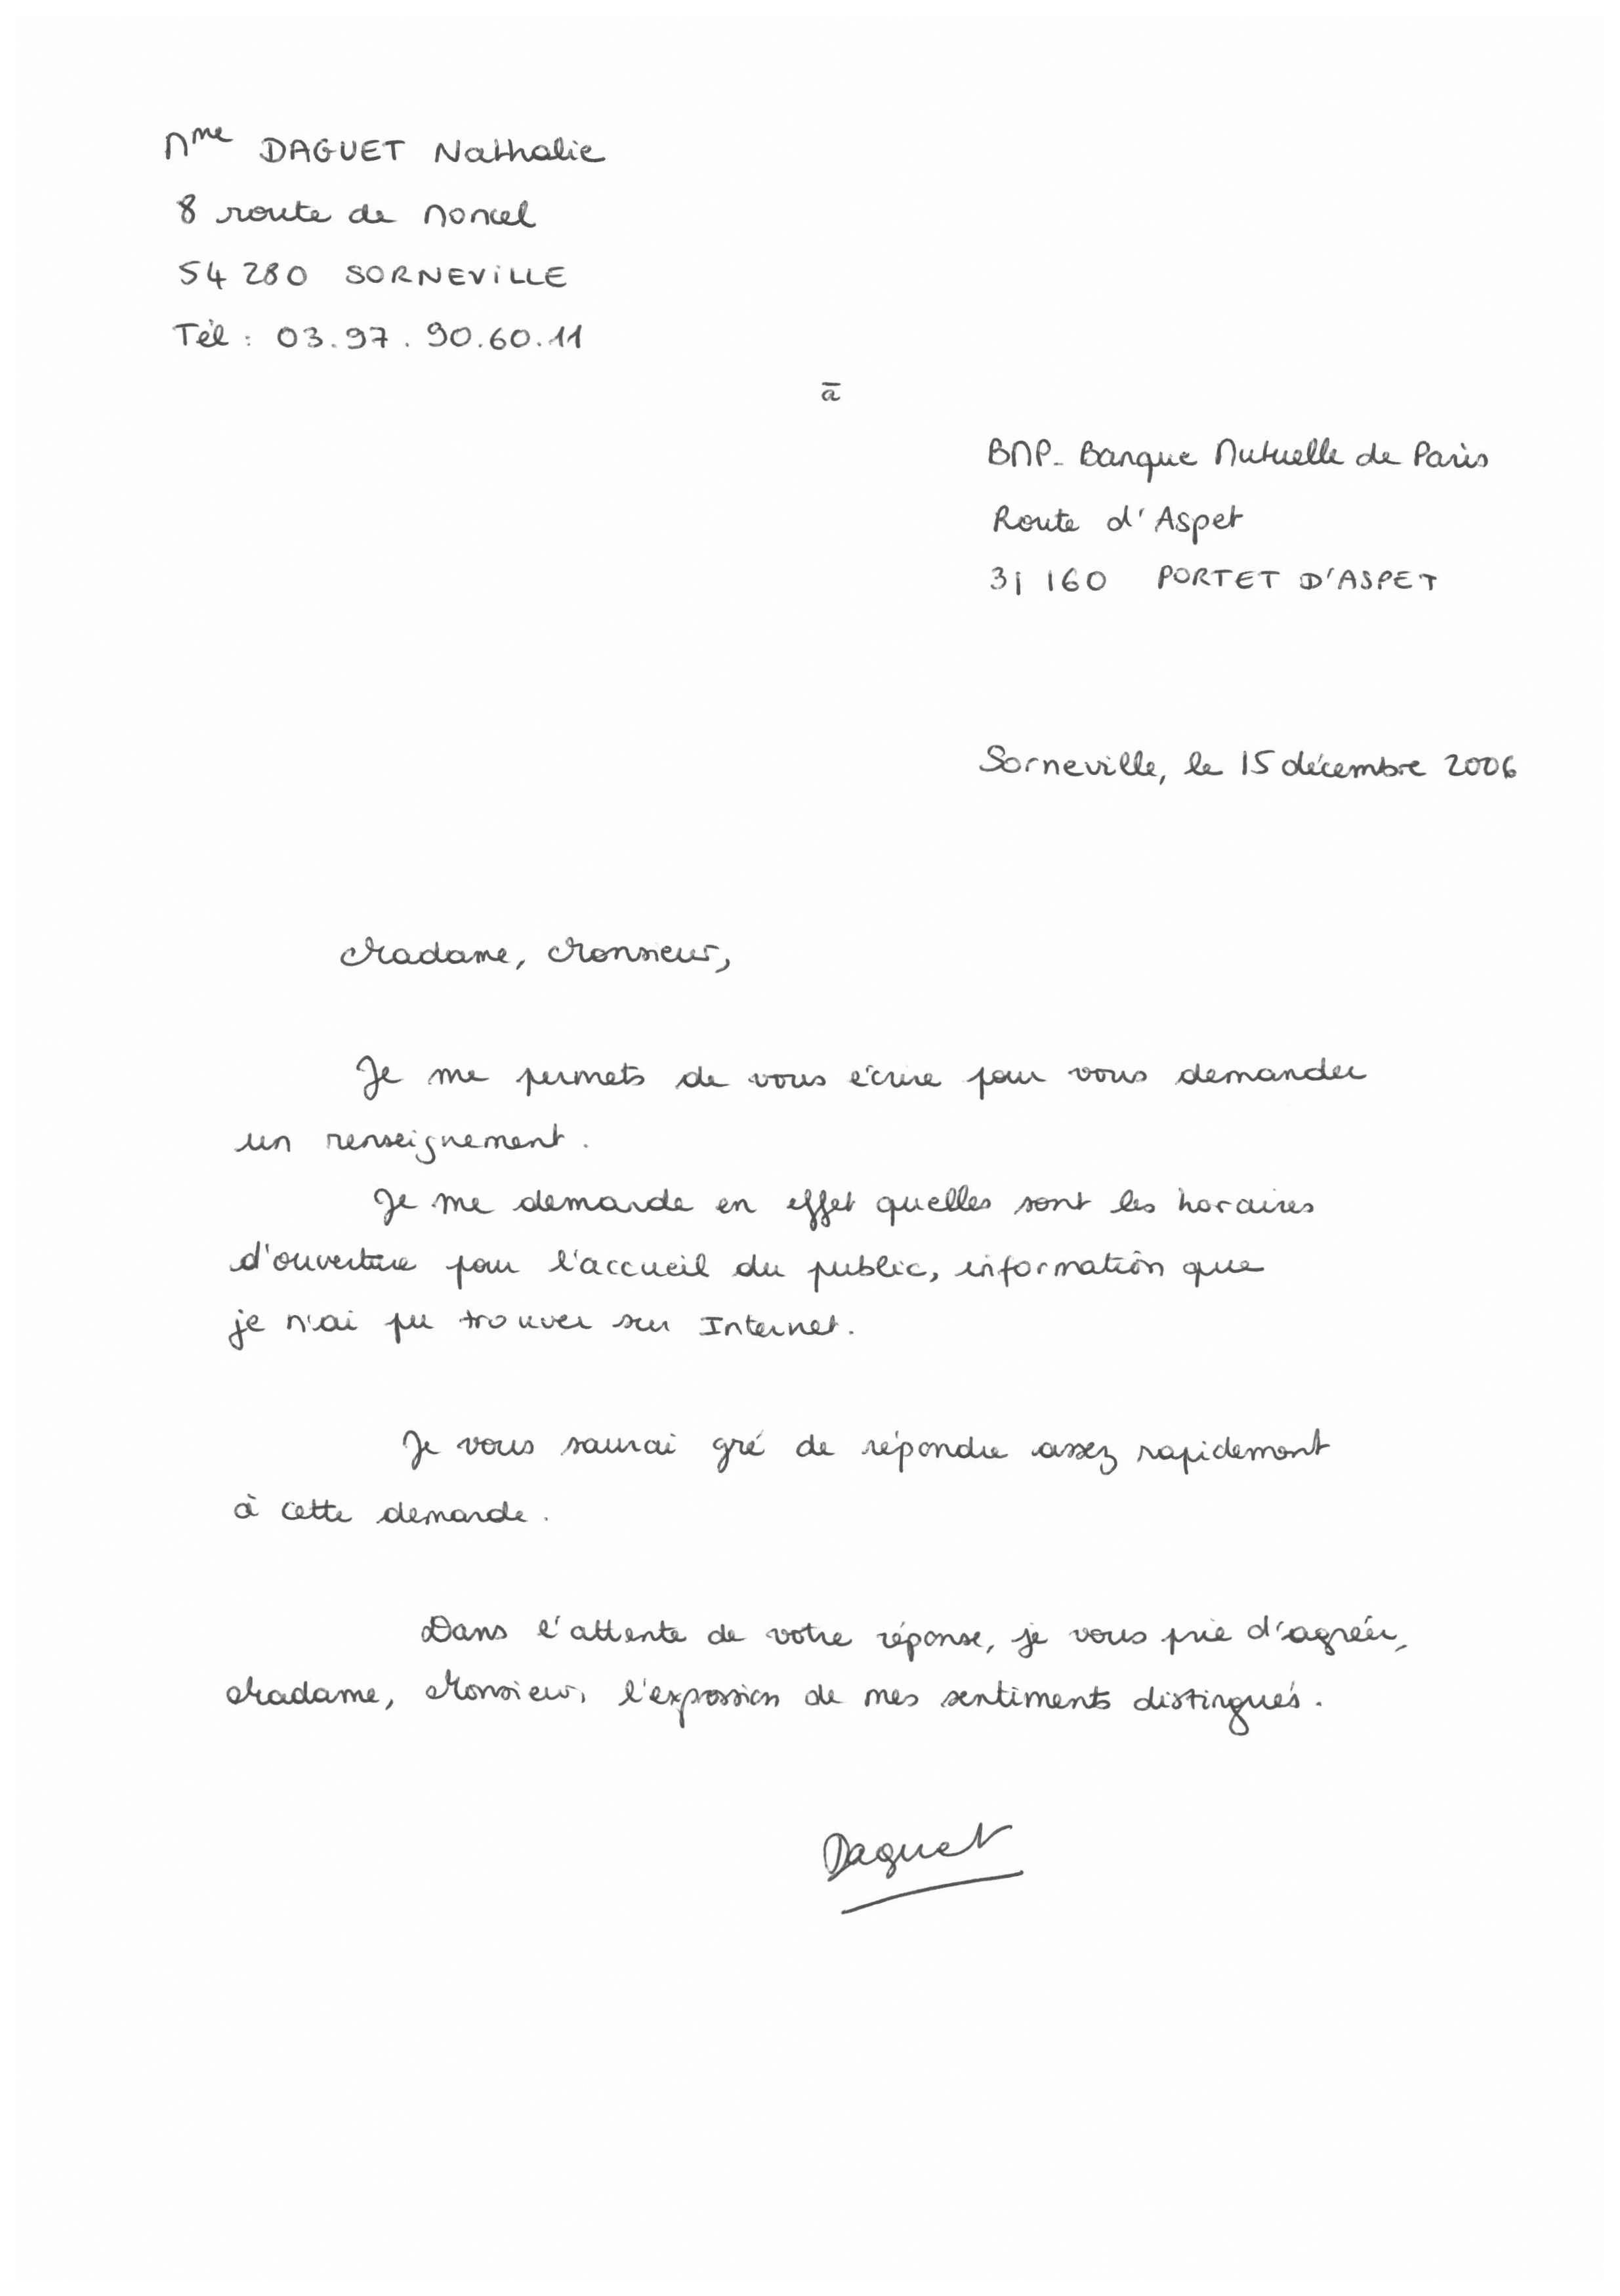 Mme DAGUET Nathalie
8 route de Moncel
54 280 SORNEVILLE
Tél : 03.97.90.60.11
à
BMP - Banque Mutuelle de Paris
Route d'Aspet
31 160 PORTET D'ASPET
Sorneville, le 15 décembre 2006
Madame, Monsieur,
Je me permets de vous écrire pour vous demander
un renseignement.
Je me demande en effet quelles sont les horaires
d'ouverture pour l'accueil du public, information que
je n'ai pu trouver sur Internet.
Je vous saurai gré de répondre assez rapidement
à cette demande.
Dans l'attente de votre réponse, je vous prie d'agréer,
Madame, Monsieur, l'expression de mes sentiments distingués.
Daguet